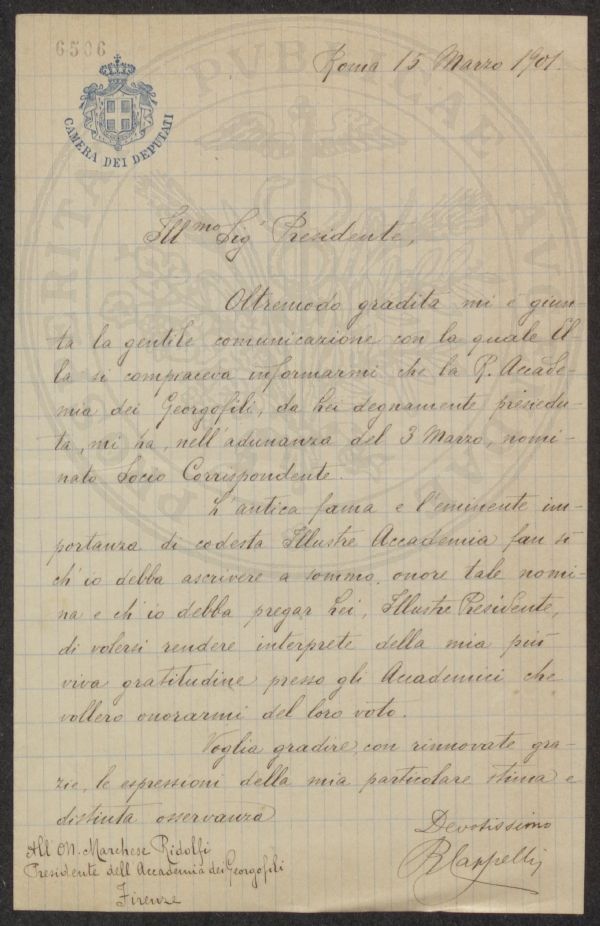 6506
CAMERA DEI DEPUTATI
Roma 15 Marzo 1901.
Ill.mo Sig.r Presidente,
Oltremodo gradita mi è giun-
ta la gentile comunicazione con la quale El-
la si compiaceva informarmi che la R. Accade-
mia dei Georgofili, da Lei degnamente presiedu-
ta, mi ha, nell'adunanza del 3 Marzo, nomi-
nato Socio Corrispondente.
L'antica fama e l'eminente im-
portanza di codesta Illustre Accademia fan sì
ch'io debba ascrivere a sommo onore tale nomi-
na e ch'io debba pregar Lei, Illustre Presidente,
di volersi rendere interprete della mia più
viva gratitudine presso gli Accademici che
vollero onorarmi del loro voto.
Voglia gradire, con rinnovate gra-
zie, le espressioni della mia particolare stima e
distinta osservanza
Devotissimo
RCappelli
All On. Marchese Ridolfi
Presidente dell Accademia dei Georgofili
Firenze